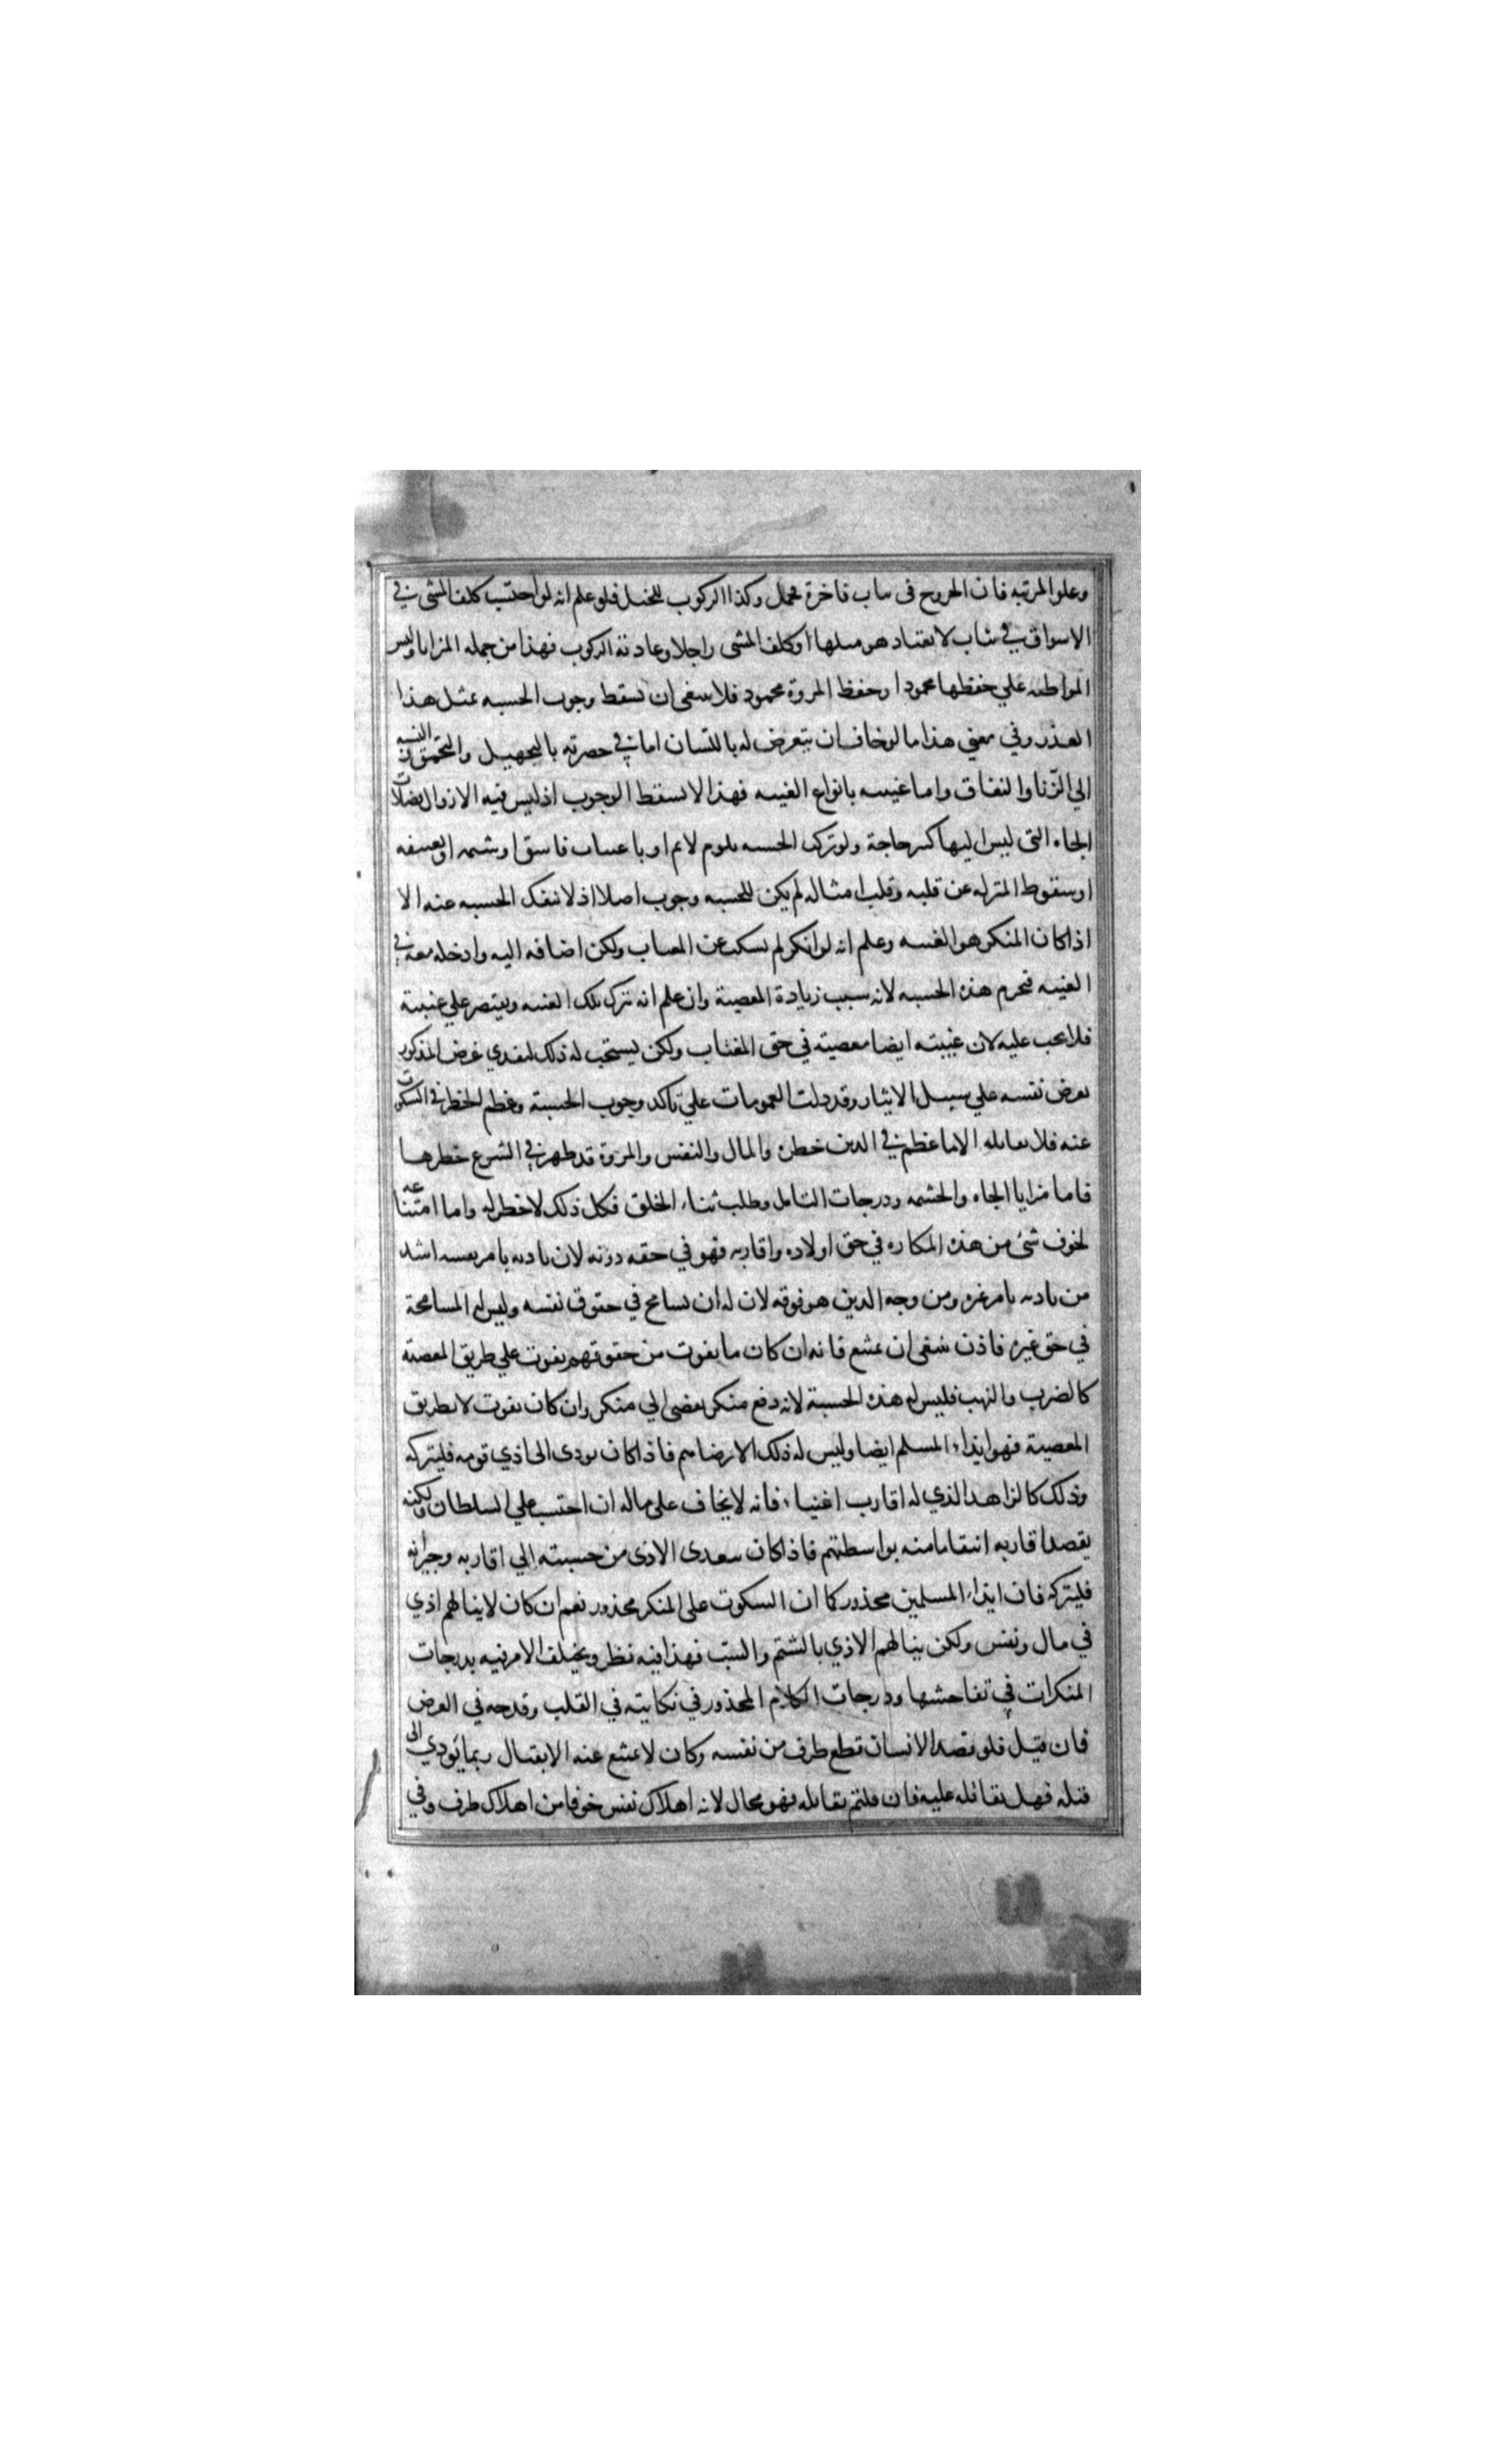 وعلو المرتبه فان الخروج فى ثياب فاخرة تجمل وكذا الركوب للخيل فلو علم انه لو احتسب كلف المشى في
الاسواق في ثياب لا يعتاد هو مثلها او كلف المشى راجلا وعادته الركوب فهذا من جمله المزايا وليس
المواظبه علي حفظها محمودا وحفظ المروة محمود فلا ينبغى ان يسقط وجوب الحسبه بمثل هذا
العذر وفي معني هذا ما لو خاف ان يتعرض له باللسان اما في حضرته بالتجهيل والتحميق والنسبه
الي الزنا والنفاق واما غيبته بانواع الغيبه فهذا لا يسقط الوجوب اذ ليس فيه الا زوال فضلات
الجاه التى ليس اليها كبير حاجة ولو ترك الحسبه بلوم لائم او باغتياب فاسق او شتمه او تعنيفه
او سقوط المنزله عن قلبه وقلب امثاله لم يكن للحسبه وجوب اصلا اذ لا تنفك الحسبه عنه الا
اذا كان المنكر هو الغيبه وعلم انه لو انكر لم يسكت عن المغتاب ولكن اضافه اليه وادخله معه في
الغيبه فتحرم هذه الحسبه لانه سبب زيادة المعصية وان علم انه يترك تلك الغيبه ويقتصر علي غيبته
فلا يجب عليه لان غيبته ايضا معصيته في حق المغتاب ولكن يستحب له ذلك ليفدي عرض المذكور
بعرض نفسه علي سبيل الايثار وقد دلت العمومات علي تاكد وجوب الحسبة وعظم الخطر في السكوت
عنه فلا يقابله الا ما عظم في الدين خطره والمال والنفس والمروة قد ظهر في الشرع خطرها
فاما مزايا الجاه والحشمه ودرجات التجمل وطلب ثناء الخلق فكل ذلك لا خطر له واما امتناعه
لخوف شئ من هذه المكاره في حق اولاده واقاربه فهو في حقه دونه لان تاذيه بامر نفسه اشد
من تاذيه بامر غيره ومن وجه الدين هو فوقه لان له ان يسامح في حقوق نفسه وليس له المسامحة
في حق غيره فاذن ينبغى ان يمتنع فانه ان كان ما يفوت من حقوقهم يفوت علي طريق المعصية
كالضرب والنهب فليس له هذه الحسبة لانه دفع منكر يفضى الي منكر وان كان يفوت لا بطريق
المعصية فهو ايذاء المسلم ايضا وليس له ذلك الا برضاهم فاذا كان يودى الى اذي قومه فليتركه
وذلك كالزاهد الذي له اقارب اغنياء فانه لا يخاف على ماله ان احتسب علي السلطان ولكنه
يقصد اقاربه انتقاما منه بواسطتهم فاذا كان يتعدى الاذى من حسبته الي اقاربه وجيرانه
فليتركه فان ايذاء المسلمين محذور كما ان السكوت على المنكر محذور نعم ان كان لا ينالهم اذي
في مال ونفس ولكن ينالهم الاذي بالشتم والسب فهذا فيه نظر ويختلف الامر فيه بدرجات
المنكرات في تفاحشها ودرجات الكلام المحذور في نكايته في القلب وقدحه في العرض
فان قيل فلو قصد الانسان قطع طرف من نفسه وكان لا يمتنع عنه الا بقتال ربما يودي الى
قتله فهل يقاتله عليه فان قلتم يقاتله فهو محال لانه اهلاك نفس خوفا من اهلاك طرف وفي